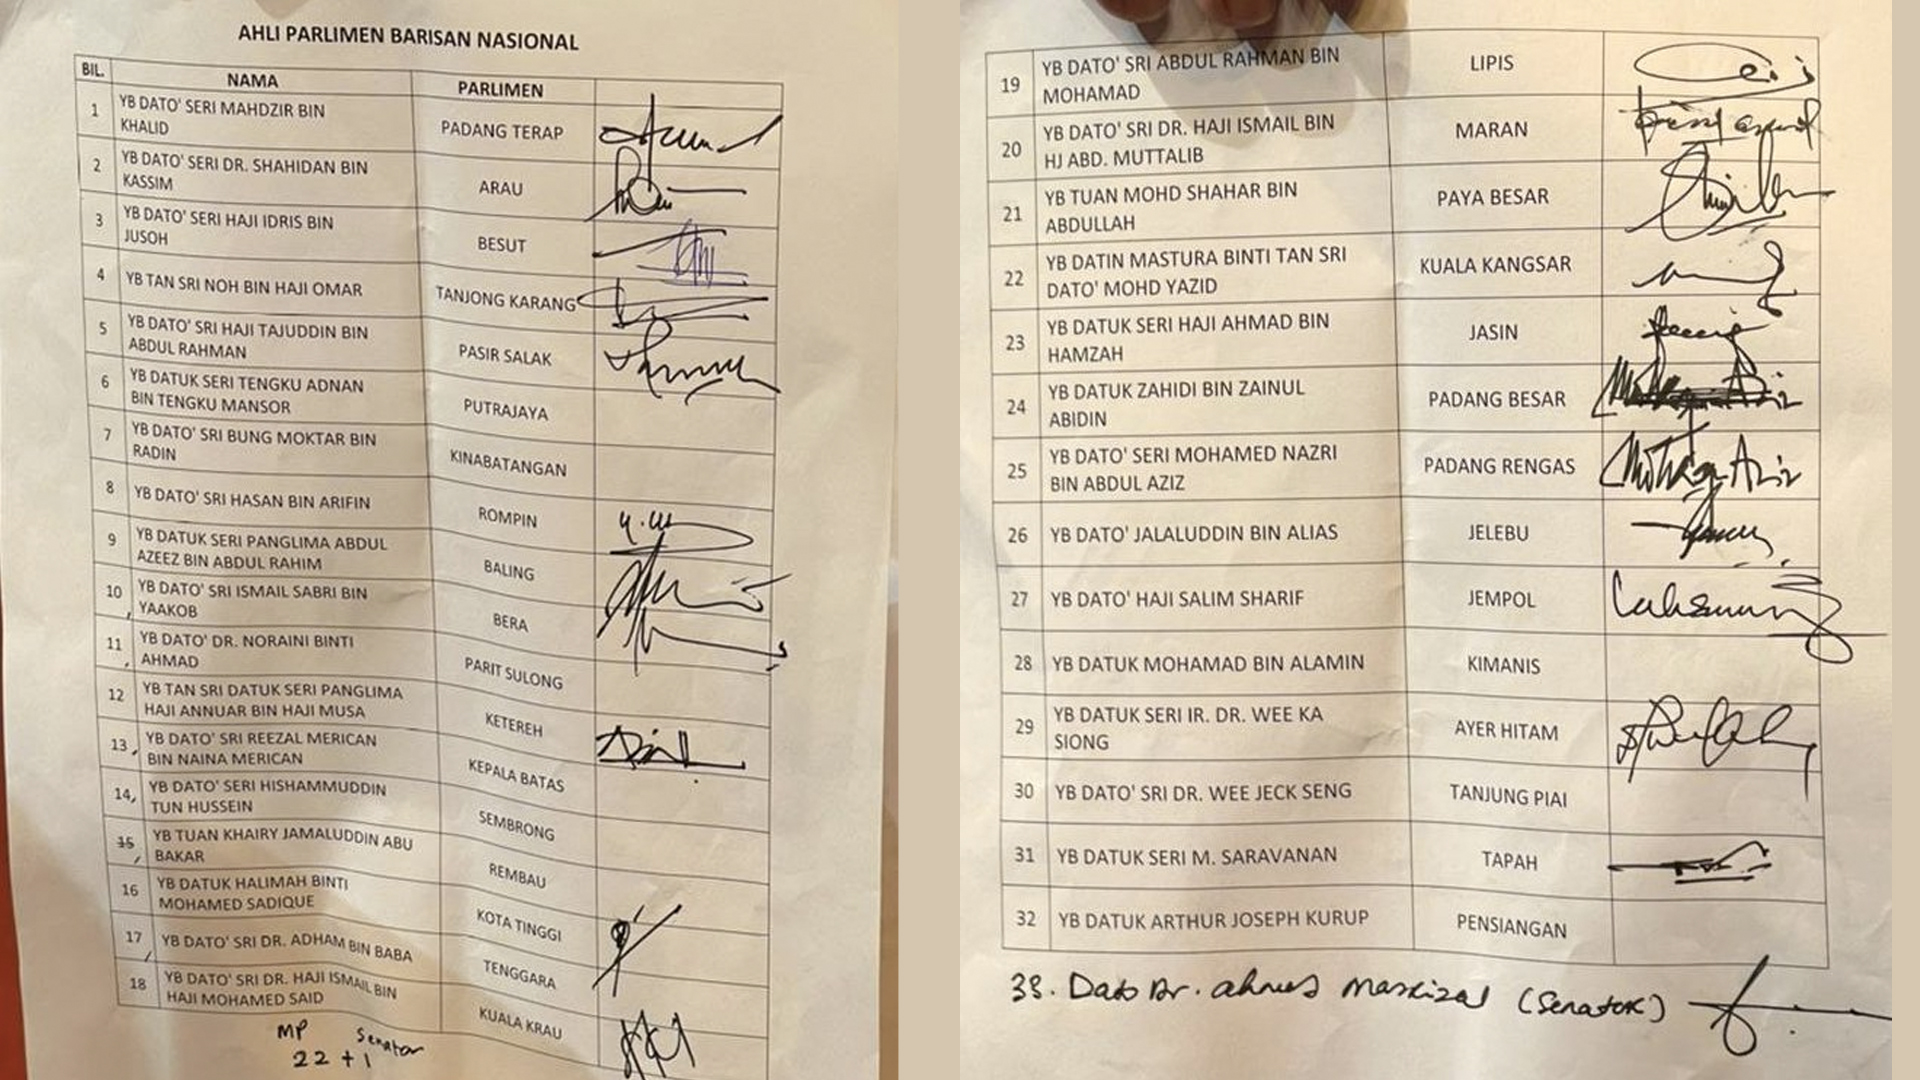 AHLI PARLIMEN BARISAN NASIONAL
BIL. NAMA PARLIMEN
1 YB DATO' SERI MAHDZIR BIN
KHALID PADANG TERAP
2 YB DATO' SERI DR. SHAHIDAN BIN
KASSIM ARAU
3 YB DATO' SERI HAJI IDRIS BIN
JUSOH BESUT
4 YB TAN SRI NOH BIN HAJI OMAR TANJONG KARANG
5 YB DATO' SRI HAJI TAJUDDIN BIN
ABDUL RAHMAN PASIR SALAK
6 YB DATUK SERI TENGKU ADNAN
BIN TENGKU MANSOR PUTRAJAYA
7 YB DATO' SRI BUNG MOKTAR BIN
RADIN KINABATANGAN
8 YB DATO' SRI HASAN BIN ARIFIN ROMPIN
9 YB DATUK SERI PANGLIMA ABDUL
AZEEZ BIN ABDUL RAHIM BALING
10 YB DATO' SRI ISMAIL SABRI BIN
YAAKOB BERA
11 YB DATO' DR. NORAINI BINTI
AHMAD PARIT SULONG
12 YB TAN SRI DATUK SERI PANGLIMA
HAJI ANNUAR BIN HAJI MUSA KETEREH
13 YB DATO' SRI REEZAL MERICAN
BIN NAINA MERICAN KEPALA BATAS
14 YB DATO' SERI HISHAMMUDDIN
TUN HUSSEIN SEMBRONG
15 YB TUAN KHAIRY JAMALUDDIN ABU
BAKAR REMBAU
16 YB DATUK HALIMAH BINTI
MOHAMED SADIQUE KOTA TINGGI
17 YB DATO' SRI DR. ADHAM BIN BABA TENGGARA
18 YB DATO' SRI DR. HAJI ISMAIL BIN
HAJI MOHAMED SAID KUALA KRAU
MP Senator
22 + 1
19 YB DATO' SRI ABDUL RAHMAN BIN
MOHAMAD LIPIS
20 YB DATO' SRI DR. HAJI ISMAIL BIN
HJ ABD. MUTTALIB MARAN
21 YB TUAN MOHD SHAHAR BIN
ABDULLAH PAYA BESAR
22 YB DATIN MASTURA BINTI TAN SRI
DATO' MOHD YAZID KUALA KANGSAR
23 YB DATUK SERI HAJI AHMAD BIN
HAMZAH JASIN
24 YB DATUK ZAHIDI BIN ZAINUL
ABIDIN PADANG BESAR
25 YB DATO' SERI MOHAMED NAZRI
BIN ABDUL AZIZ PADANG RENGAS
26 YB DATO' JALALUDDIN BIN ALIAS JELEBU
27 YB DATO' HAJI SALIM SHARIF JEMPOL
28 YB DATUK MOHAMAD BIN ALAMIN KIMANIS
29 YB DATUK SERI IR. DR. WEE KA
SIONG AYER HITAM
30 YB DATO' SRI DR. WEE JECK SENG TANJUNG PIAI
31 YB DATUK SERI M. SARAVANAN TAPAH
32 YB DATUK ARTHUR JOSEPH KURUP PENSIANGAN
33. Dato Dr. (Senator)